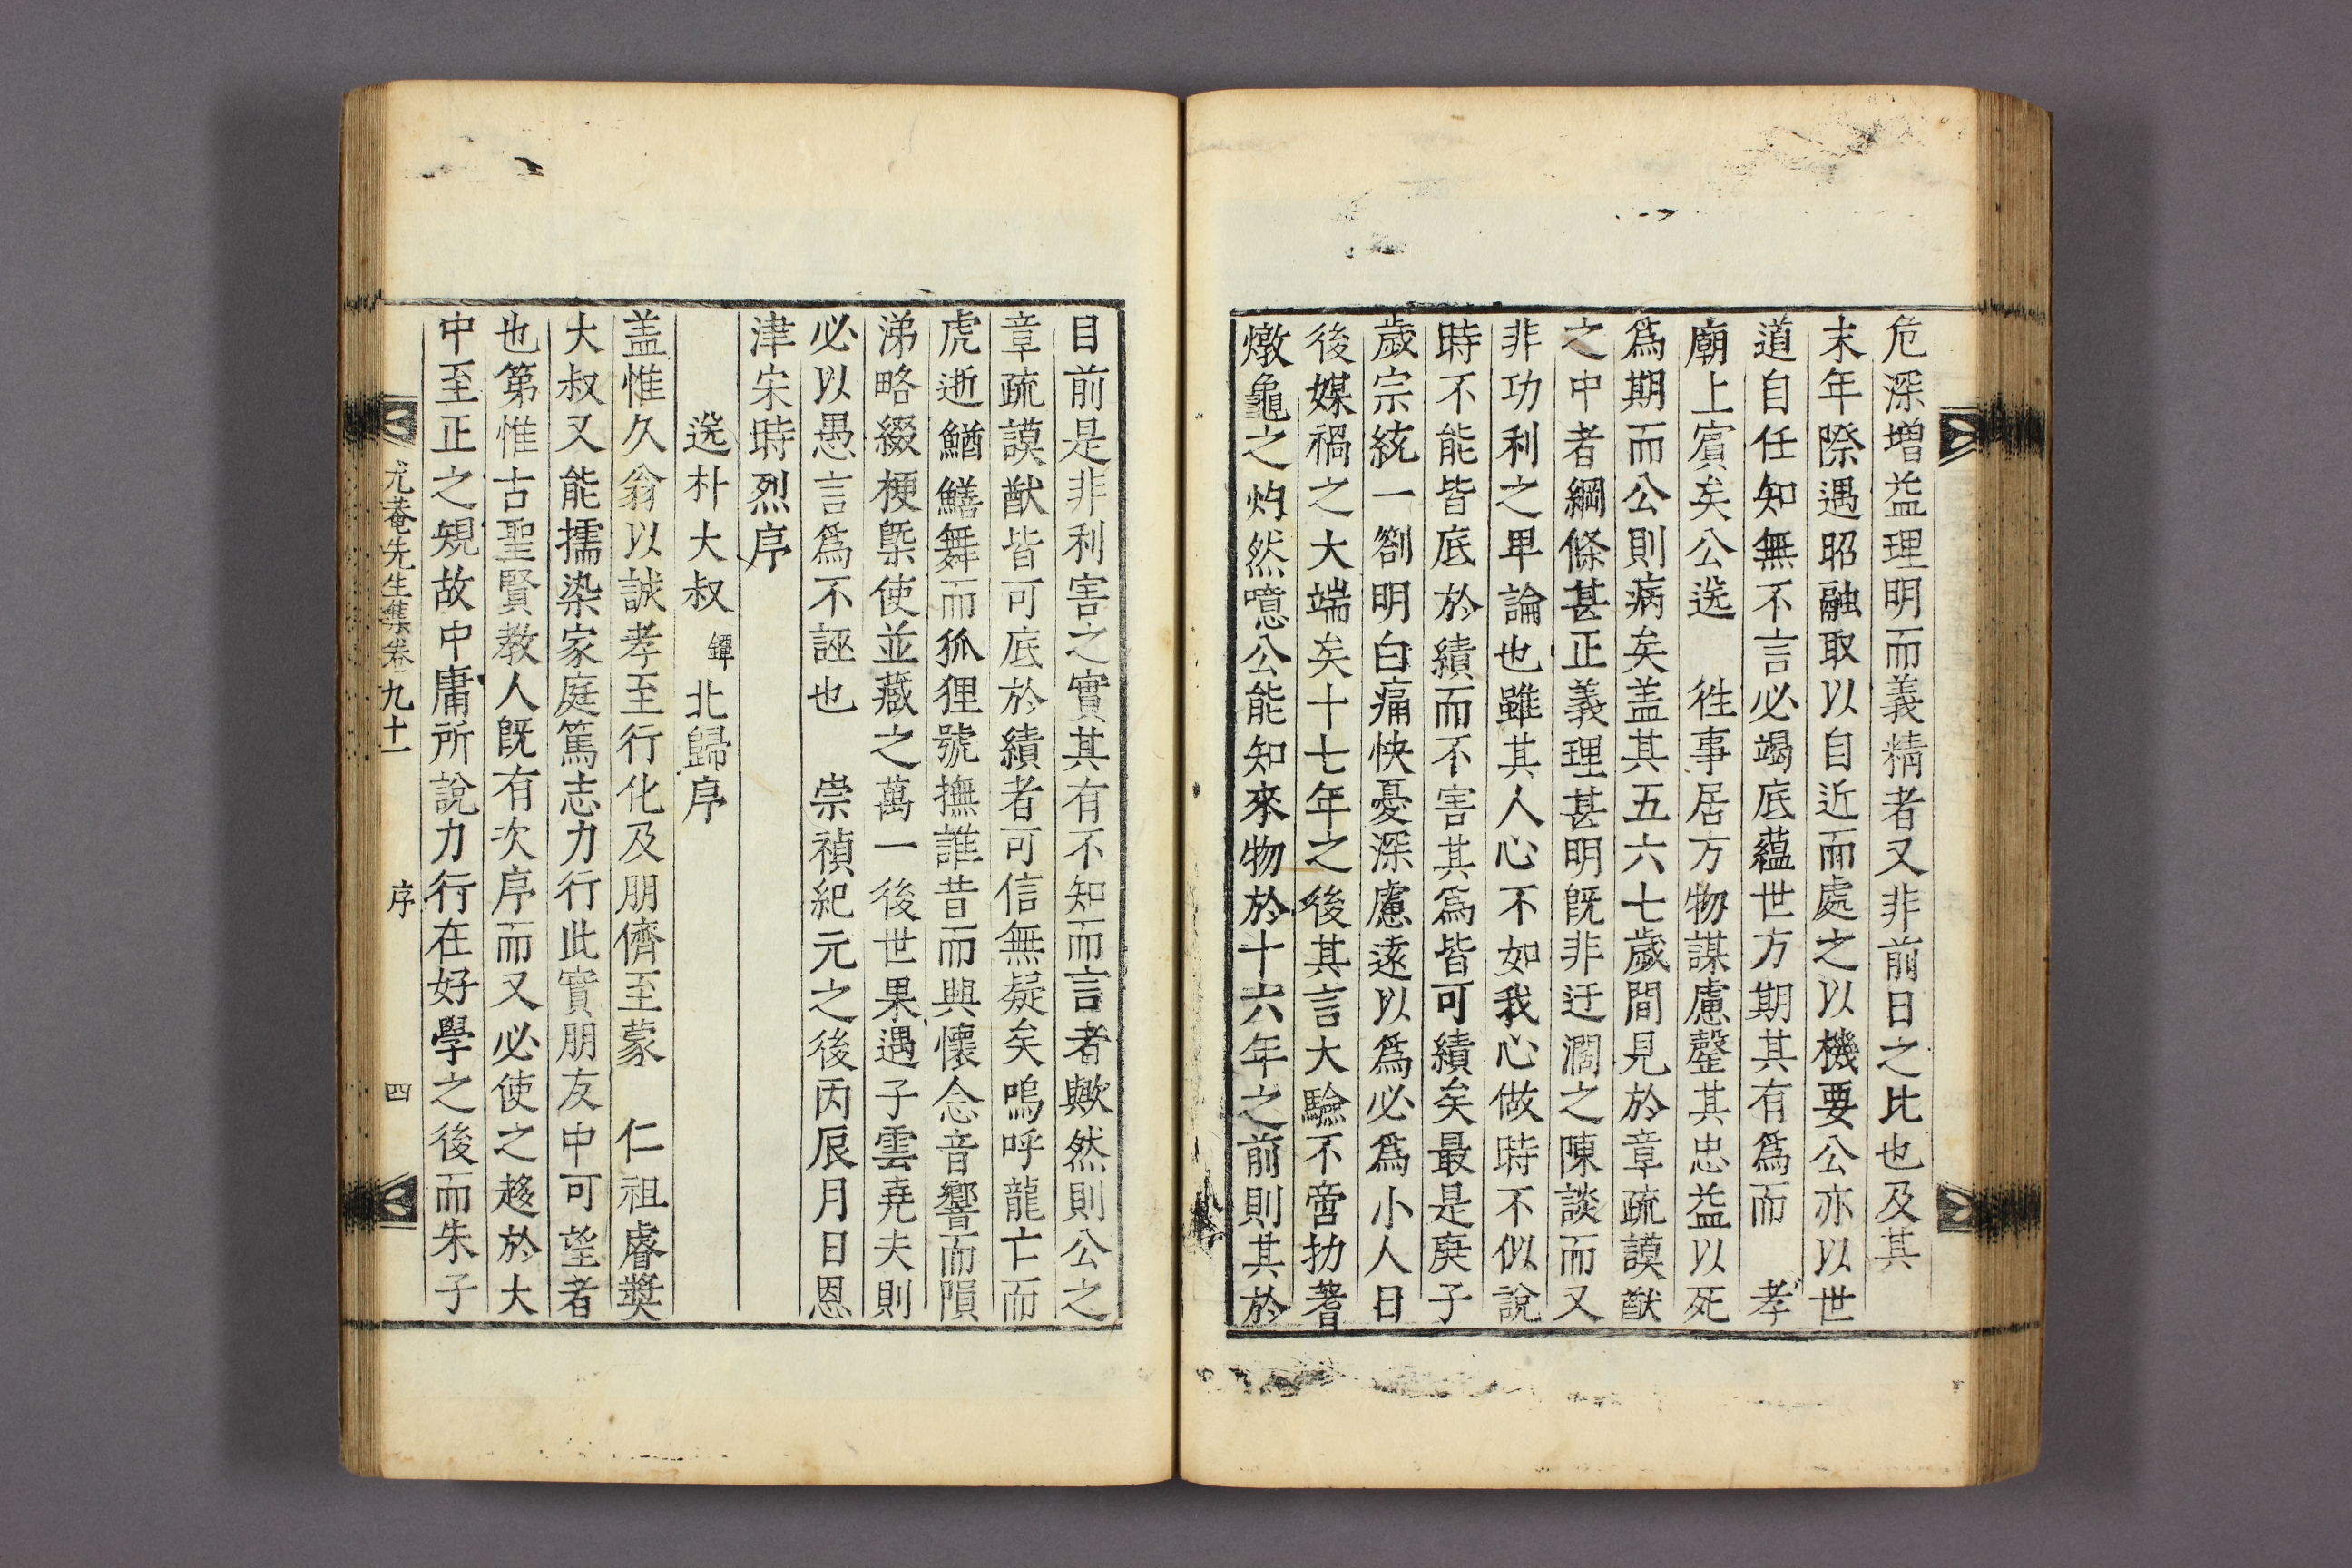 危深增益理明而義精者又非前日之比也及其
末年際遇昭融取以自近而處之以機要公亦以世
道自任知無不言必竭底蘊世方期其有爲而　孝
廟上賓矣公送　徃事居方物謀慮罄其忠益以死
爲期而公則病矣盖其五六七歲間見於章疏謨猷
之中者綱條甚正義理甚明旣非迂濶之陳談而又
非功利之卑論也雖其人心不如我心做時不似說
時不能皆底於績而不害其爲皆可績矣最是庚子
歲宗統一劄明白痛快憂深慮遠以爲必爲小人日
後媒禍之大端矣十七年之後其言大驗不啻扐蓍
燉龜之灼然噫公能知來物於十六年之前則其於
目前是非利害之實其有不知而言者歟然則公之
章疏謨猷皆可底於績者可信無疑矣嗚呼龍亡而
虎逝鰌鱔舞而狐狸號撫誰昔而興懷念音響而隕
涕略綴梗槩使並藏之萬一後世果遇子雲堯夫則
必以愚言爲不誣也　崇禎紀元之後丙辰月日恩
津宋時烈序
送朴大叔鐔北歸序
盖惟久翁以誠孝至行化及朋儕至蒙　仁祖睿奬
大叔又能擩染家庭篤志力行此實朋友中可望者
也第惟古聖賢敎人旣有次序而又必使之趍於大
中至正之䂓故中庸所說力行在好學之後而朱子
尤菴先生集卷九十一　序　四